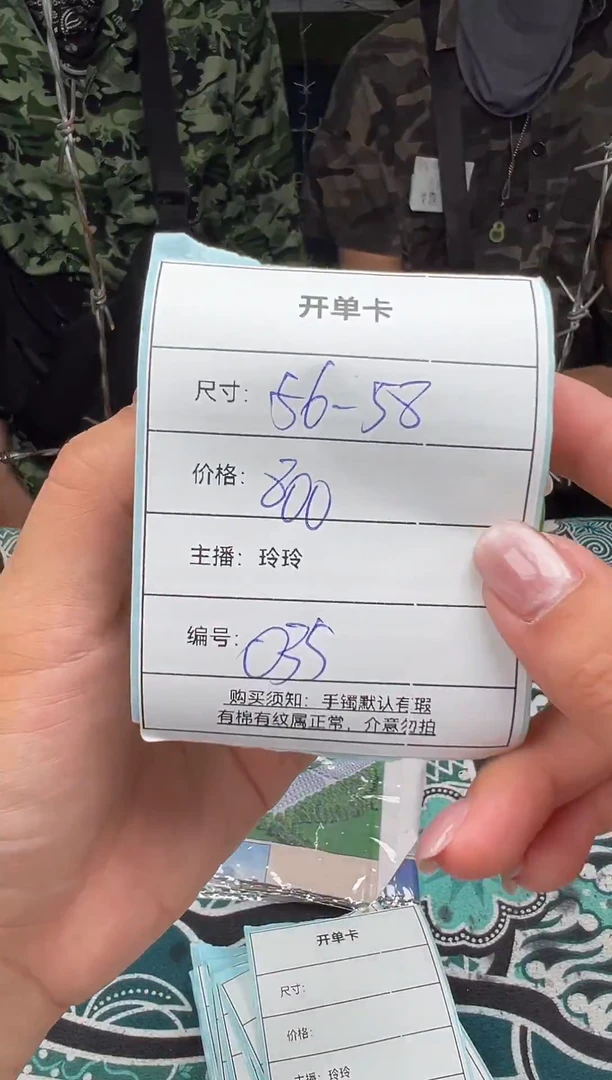 开单卡
尺寸: 56-58
价格: 800
主播: 玲玲
编号: 035
购买须知: 手镯默认有瑕
有棉有纹属正常, 介意勿拍
开单卡
尺寸:
价格:
主播: 玲玲